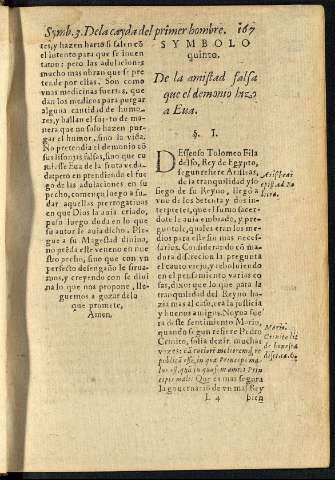 Symb. 3. De la cayda del primer hombre. 167
tes, y hazen harto si salen cõ
el intento para que se inuen
taron: pero las adulaciones
mucho mas obran que se pre
tende por ellas. Son como
vnas medicinas fuertes, que
dan los medicos para purgar
alguna cantidad de humo-
res, y hallan el sujeto de mane
ra que no solo hazen purgar
el humor, sino la vida.
No pretendia el demonio cõ
sus lisonjas falsas, sino que co
miesse Eua de la fruta veda-
da: pero en prendiendo el fue
go de las adulaciones en su
pecho, començo luego a du-
dar aquellas prerrogatiuas
en que Dios la auia criado,
puso luego duda en lo que
su autor se auia dicho. Ple-
gue a su Magestad diuina,
no prenda este veneno en nue
stro pecho, sino que con vn
perfecto desengaño le siruа-
mos, y creyendo con fe diui
na lo que nos propone, lle-
guemos a gozar de la
que promete,
Amen.
SYMBOLO
quinto.
De la amistad falsa
que el demonio hizo
a Eua.
§. I.
DEsseoso Tolomeo Fila
delfo, Rey de Egypto,
segun refiere Aristeas,
de la tranquilidad y so
siego de su Reyno, llegò a
vno de los Setenta y dos in-
terpretes, que el sumo sacer-
dote le auia embiado, y pre-
guntole, quales eran los me-
dios para esto mas nece-
sarios. Considerando cõ ma-
dura discrecion la pregunta
el cauto viejo, y reboluiendo
en el pensamiento varias co
sas, dixo: que lo que para la
tranquilidad del Reyno ha-
zia mas al caso, era la justicia
y buenos amigos. No yua fue
ra deste sentimiento Mario,
quando segun refiere Pedro
Crinito, solia dezir muchas
vezes:
Que es mas segura
la gouernacion de vn mas Rey
L 4 bien
Aristeas
Mario.
Crinito li